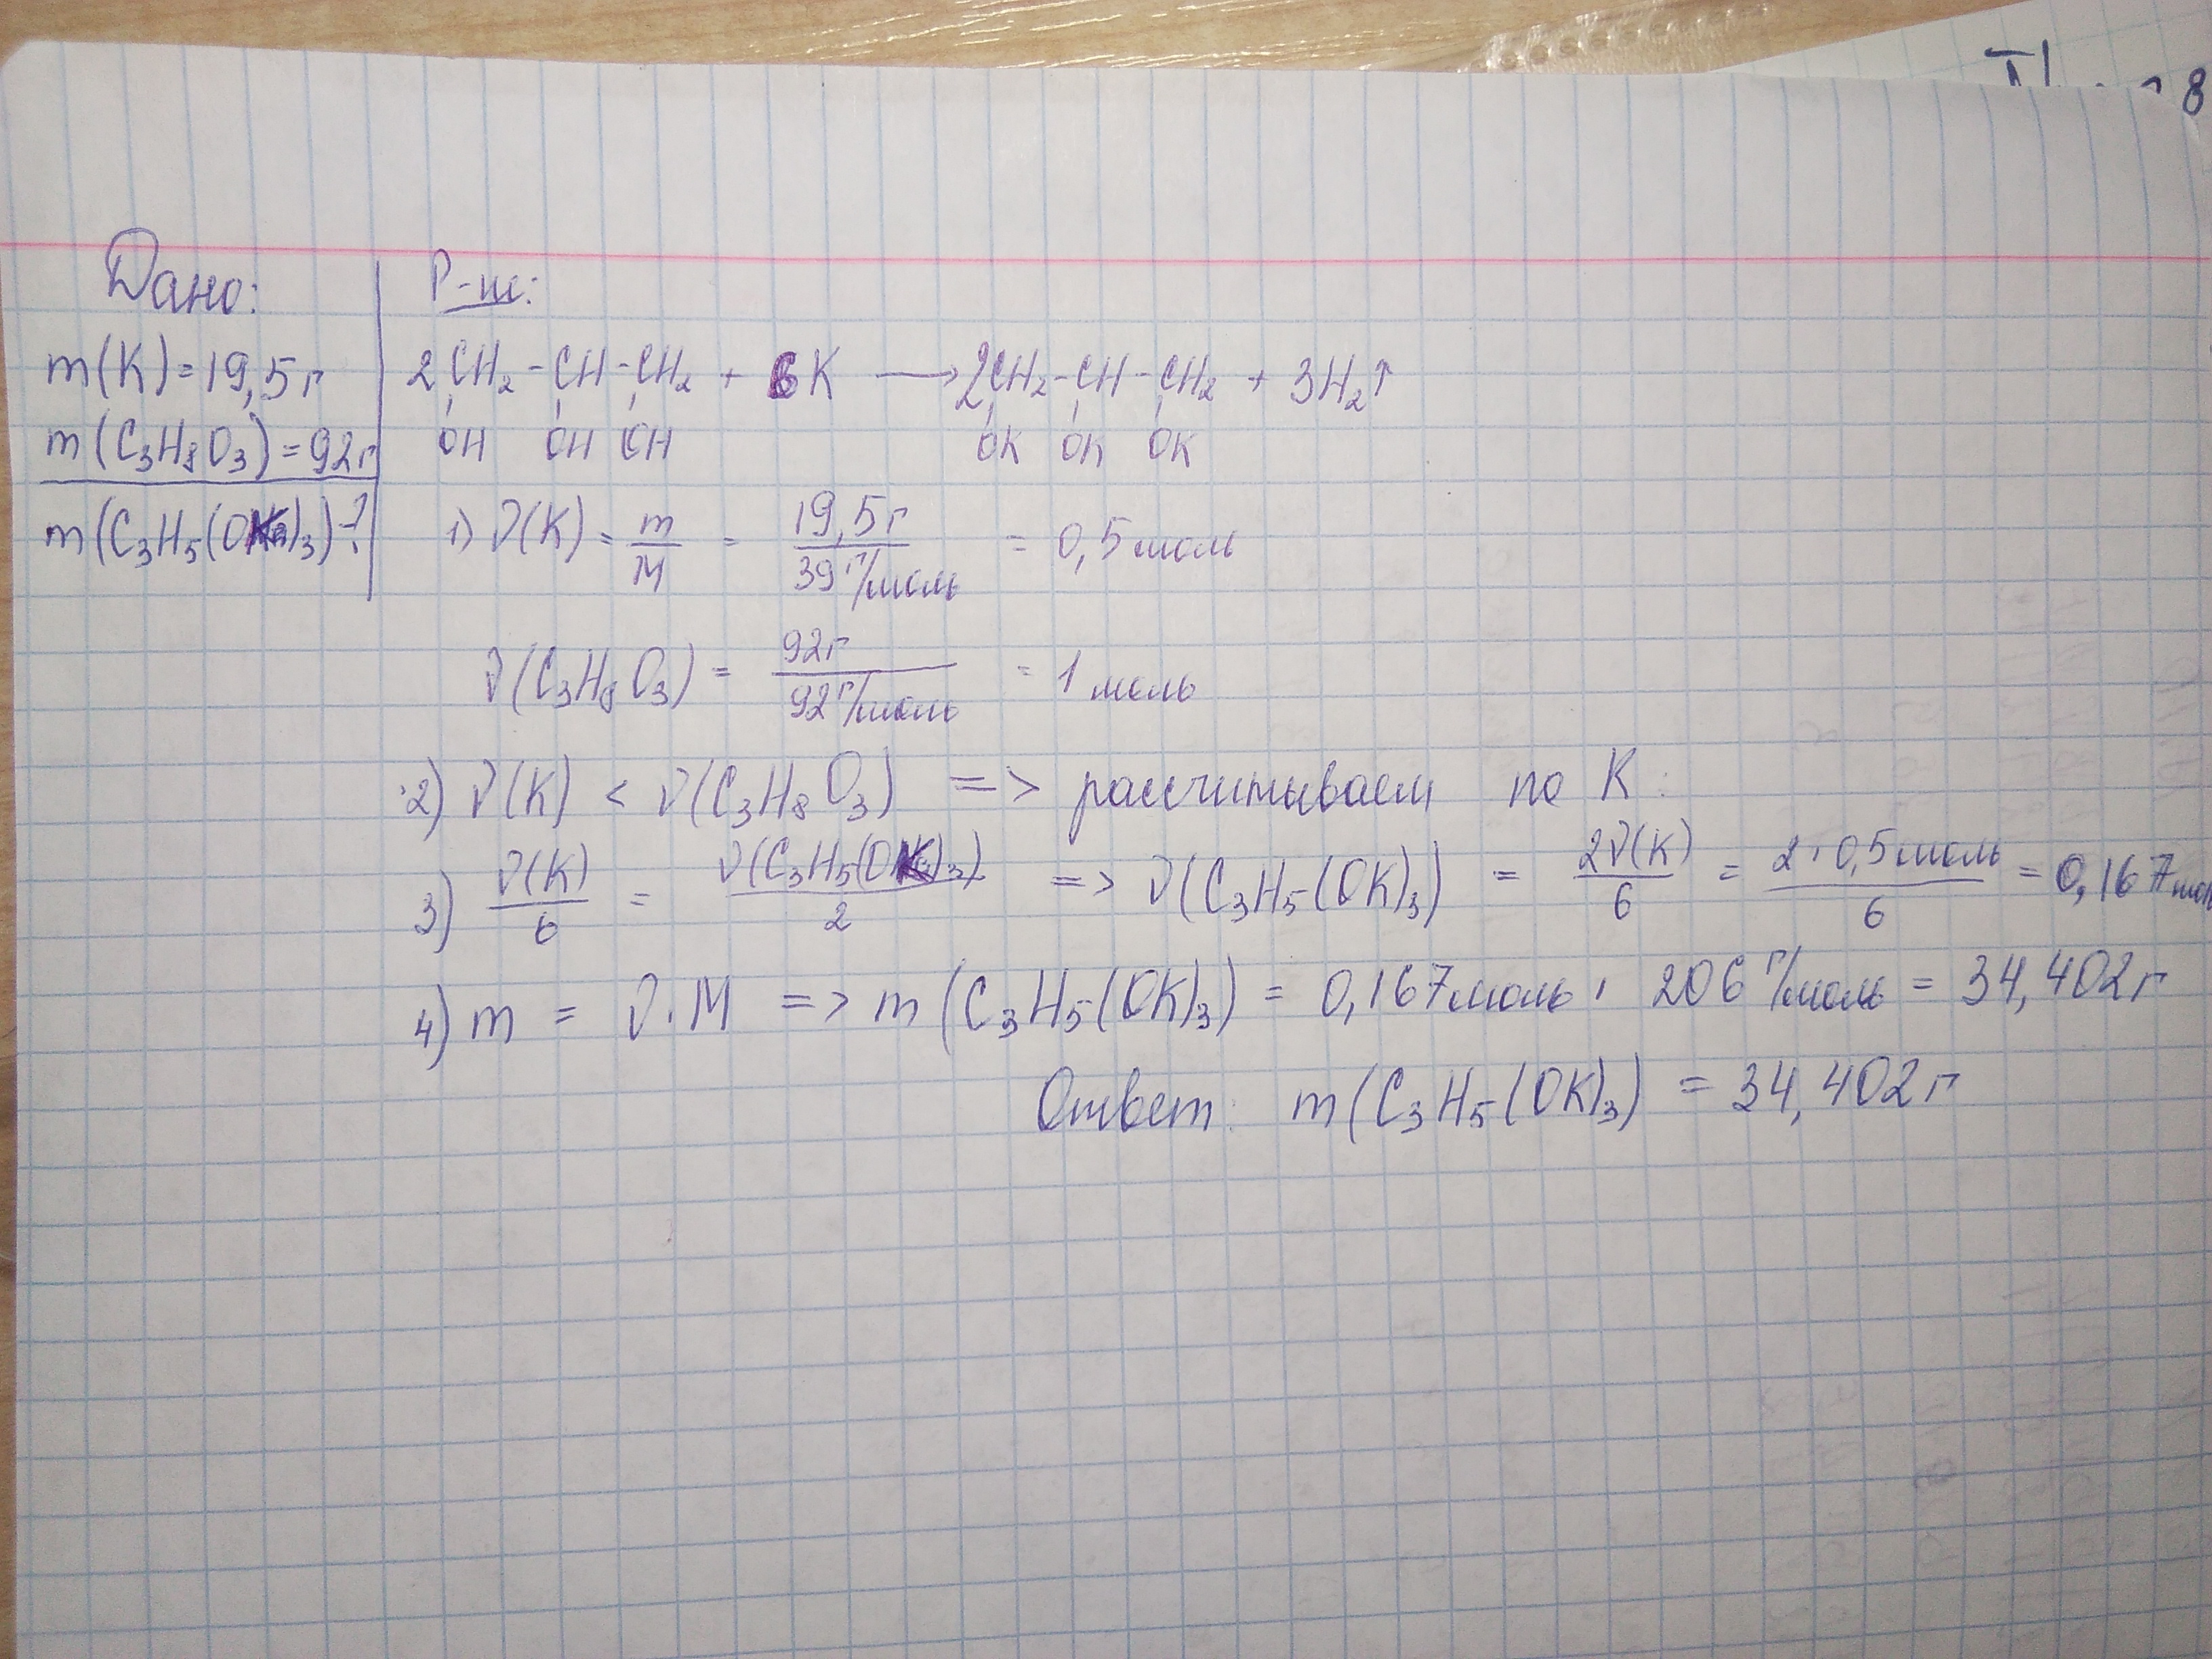 Дано:
m(K)=19,5г
m(C₃H₈O₃)=92г
m(C₃H₅(OK)₃)-?
Р-ие:
2CH₂-CH-CH₂ + 6K ⟶ 2CH₂-CH-CH₂ + 3H₂↑
OH OH OH OK OK OK
1) ν(K) = m/M = 19,5г/39г/моль = 0,5моль
ν(C₃H₈O₃) = 92г/92г/моль = 1моль
2) ν(K) < ν(C₃H₈O₃) => рассчитываем по K:
3) ν(K)/6 = ν(C₃H₅(OK)₃)/2 => ν(C₃H₅(OK)₃) = 2ν(K)/6 = 2·0,5моль/6 = 0,167моль
4) m = ν·M => m(C₃H₅(OK)₃) = 0,167моль · 206г/моль = 34,402г
Ответ: m(C₃H₅(OK)₃) = 34,402г